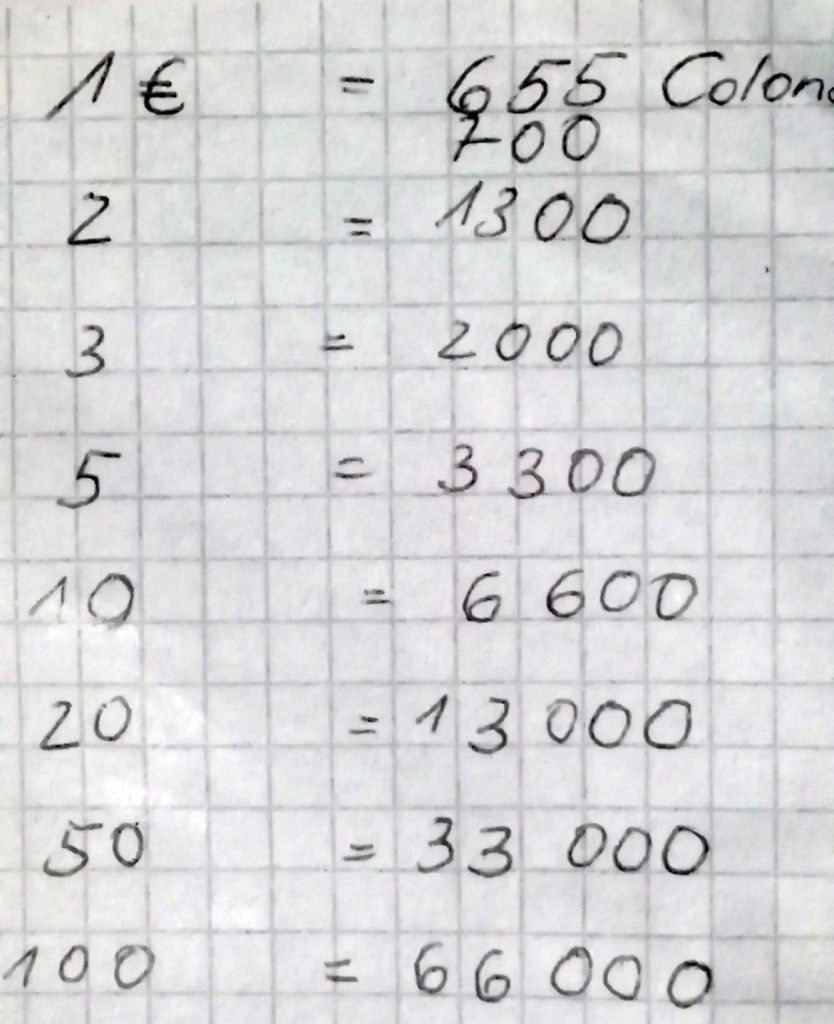 1 € = 655 Colon
700
2 = 1300
3 = 2000
5 = 3300
10 = 6 600
20 = 13 000
50 = 33 000
100 = 66 000